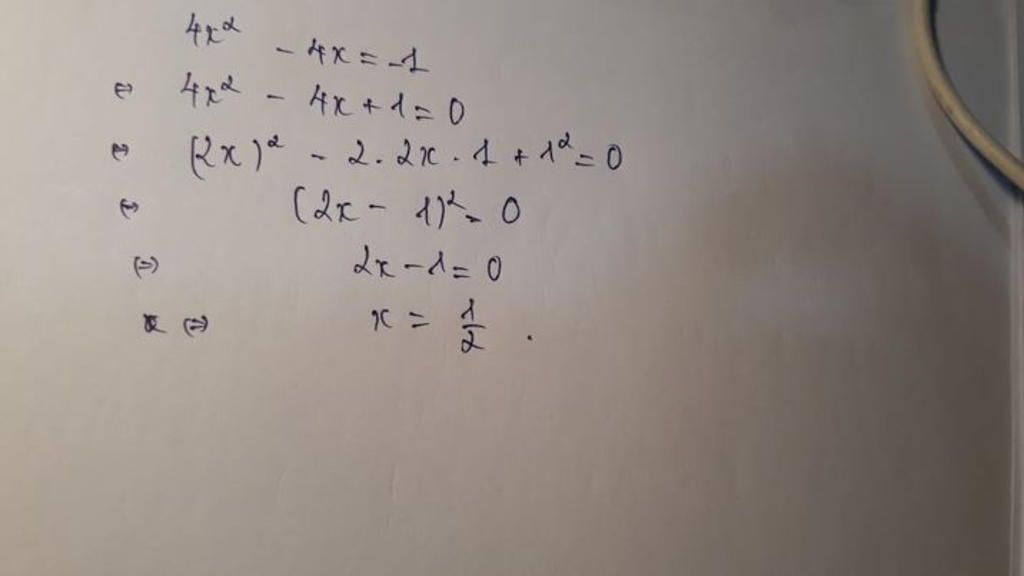 4x² - 4x = -1
⇔ 4x² - 4x + 1 = 0
⇔ (2x)² - 2.2x.1 + 1² = 0
⇔ (2x - 1)² = 0
⇔ 2x - 1 = 0
⇔ x = 1/2.